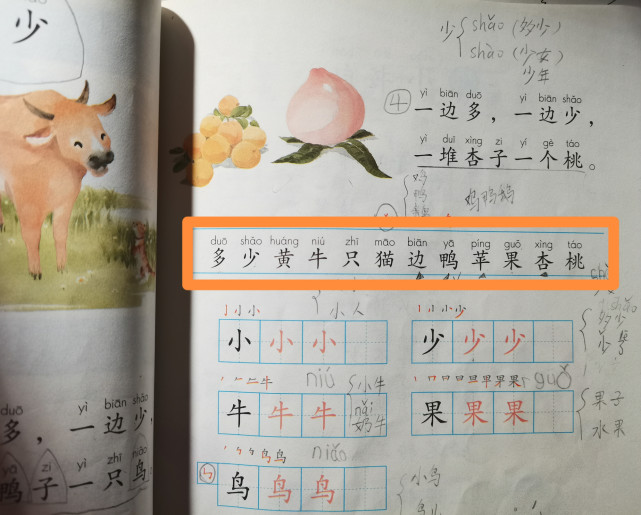 少
少 shǎo (多少)
shào (少女)
少年
yì biān duō yì biān shǎo
④ 一边多，一边少，
yì duī xìng zi yí gè táo
一堆杏子一个桃。
鸡
鸭
鸡鸭鹅
duō shǎo huáng niú zhī māo biān yā píng guǒ xìng táo
多少黄牛只猫边鸭苹果杏桃
小人
亅小小
小小小
丨小小少
少少少
多少
niú
牛牛牛
小牛
nǎi
奶牛
guǒ
果果果
果子
水果
niǎo
鸟鸟鸟
小鸟
duō yì biān
多，一边少，
yā zi yì zhī
鸭子一只鸟